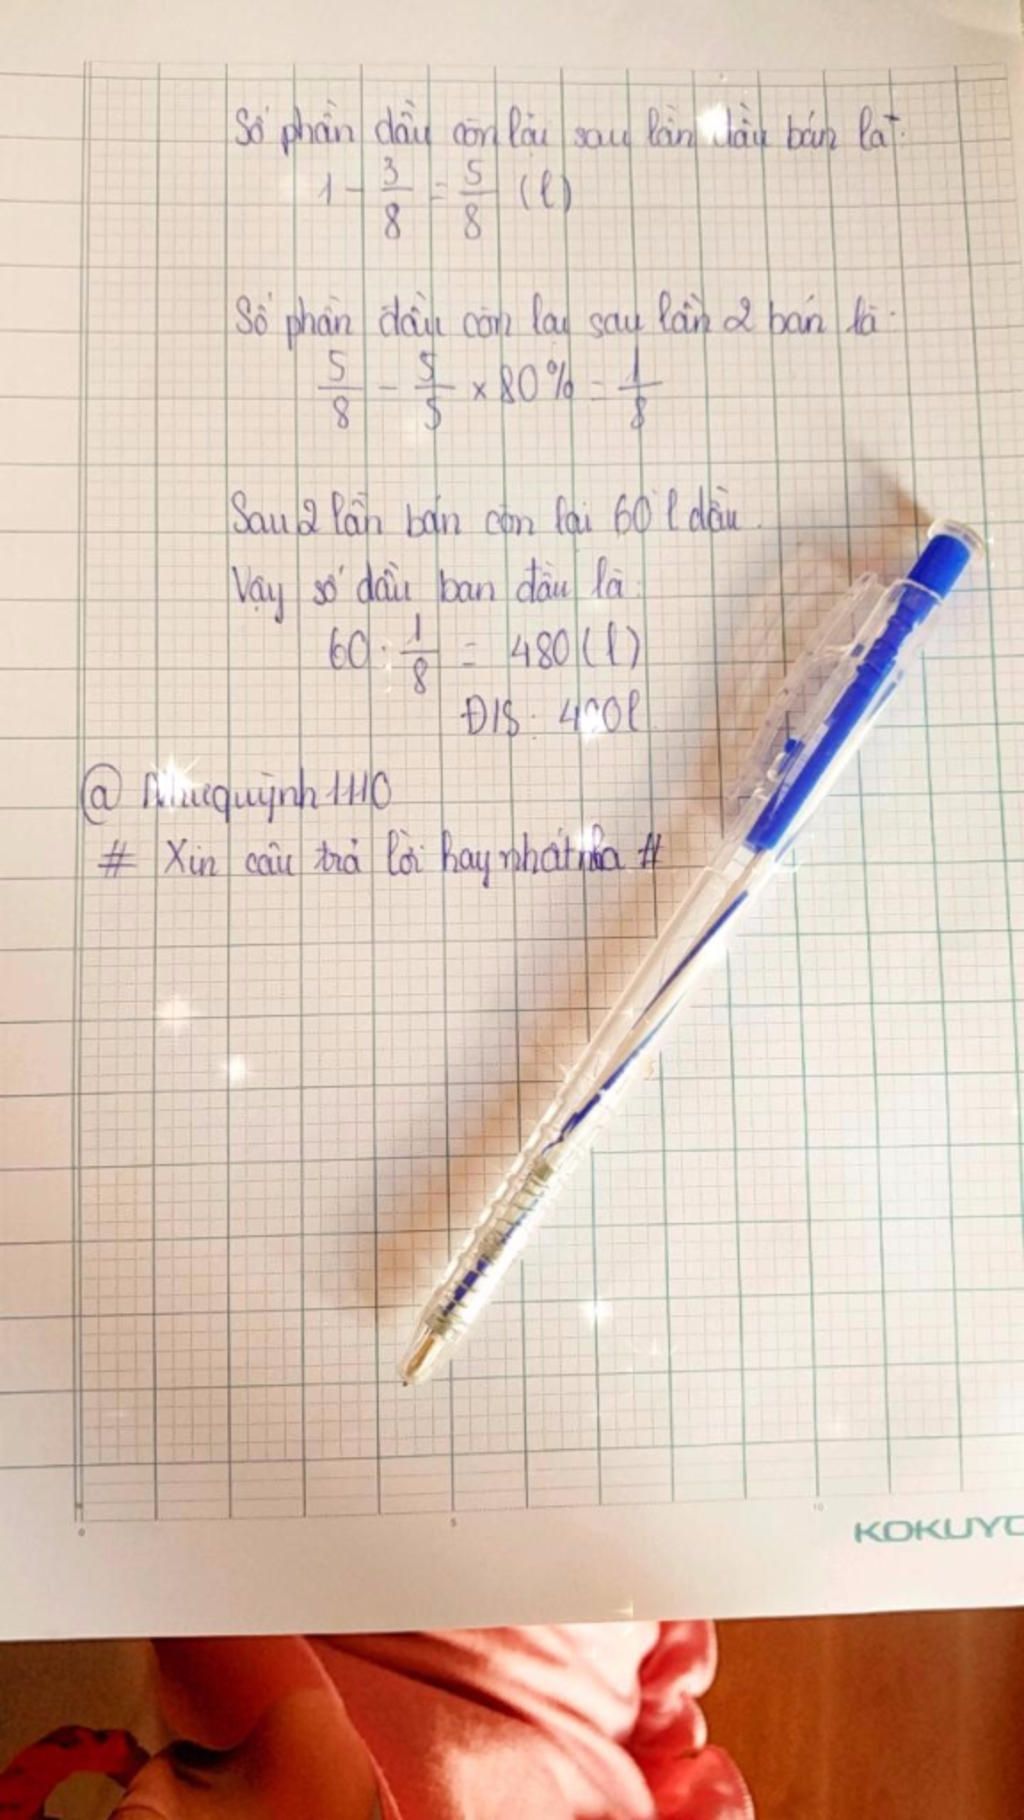 Số phần dầu còn lại sau lần đầu bán là:
1 - 3/8 = 5/8 (l)
Số phần dầu còn lại sau lần 2 bán là:
5/8 - 5/5 × 80% = 1/8
Sau 2 lần bán còn lại 60 l dầu.
Vậy số dầu ban đầu là:
60 : 1/8 = 480 (l)
Đ/S: 480l
@ Nhuquỳnh1110
# Xin câu trả lời hay nhất nha #
0 5 10
KOKUYO